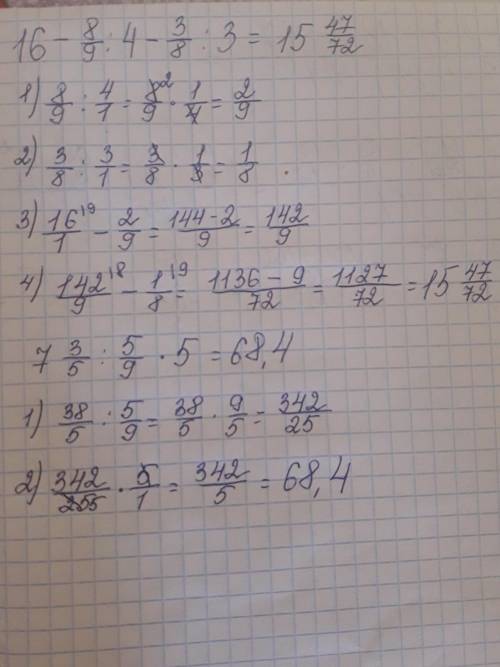 16 - 8/9 : 4 - 3/8 : 3 = 15 47/72
1) 8/9 : 4/1 = 8²/9 · 1/4 = 2/9
2) 3/8 : 3/1 = 3/8 · 1/3 = 1/8 .
3) 16^(19)/1 - 2/9 = (144-2)/9 = 142/9
4) 142^(18)/9 - 1^(19)/8 = (1136 - 9)/72 = 1127/72 = 15 47/72
7 3/5 : 5/9 · 5 = 68,4
1) 38/5 : 5/9 = 38/5 · 9/5 = 342/25
2) 342/255 · 5/1 = 342/5 = 68,4